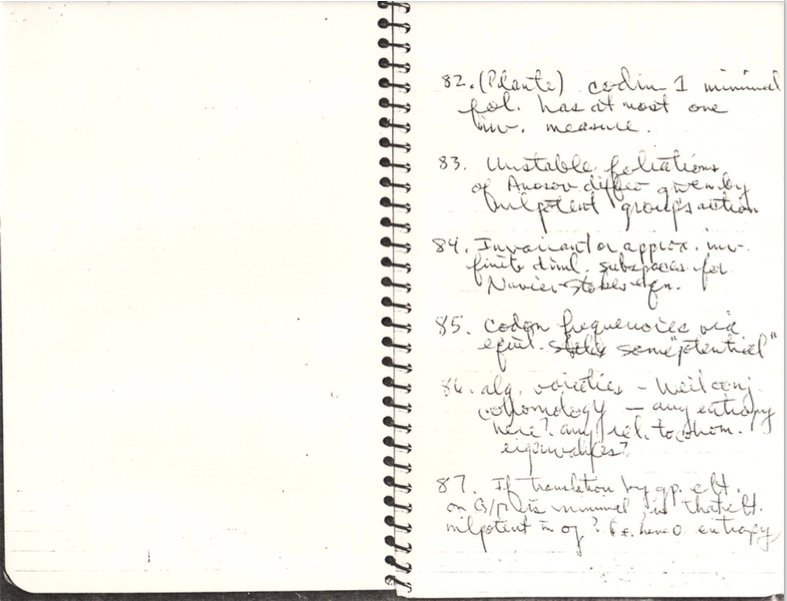 82. (Plante) codim 1 minimal
fol. has at most one
inv. measure.
83. Unstable foliations
of Anosov diffeo given by
nilpotent group's action
84. Invariant or approx. inv.
finite diml. subspaces for
Navier-Stokes eqn.
85. Codon frequencies via
equil. states some "potential"
86. alg. varieties - Weil conj.
cohomology - any entropy
here? any rel. to chom.
eigenvalues?
87. If translation by gp. elt.
on G/Γ is minimal is that elt.
nilpotent in g? i.e. have 0 entropy